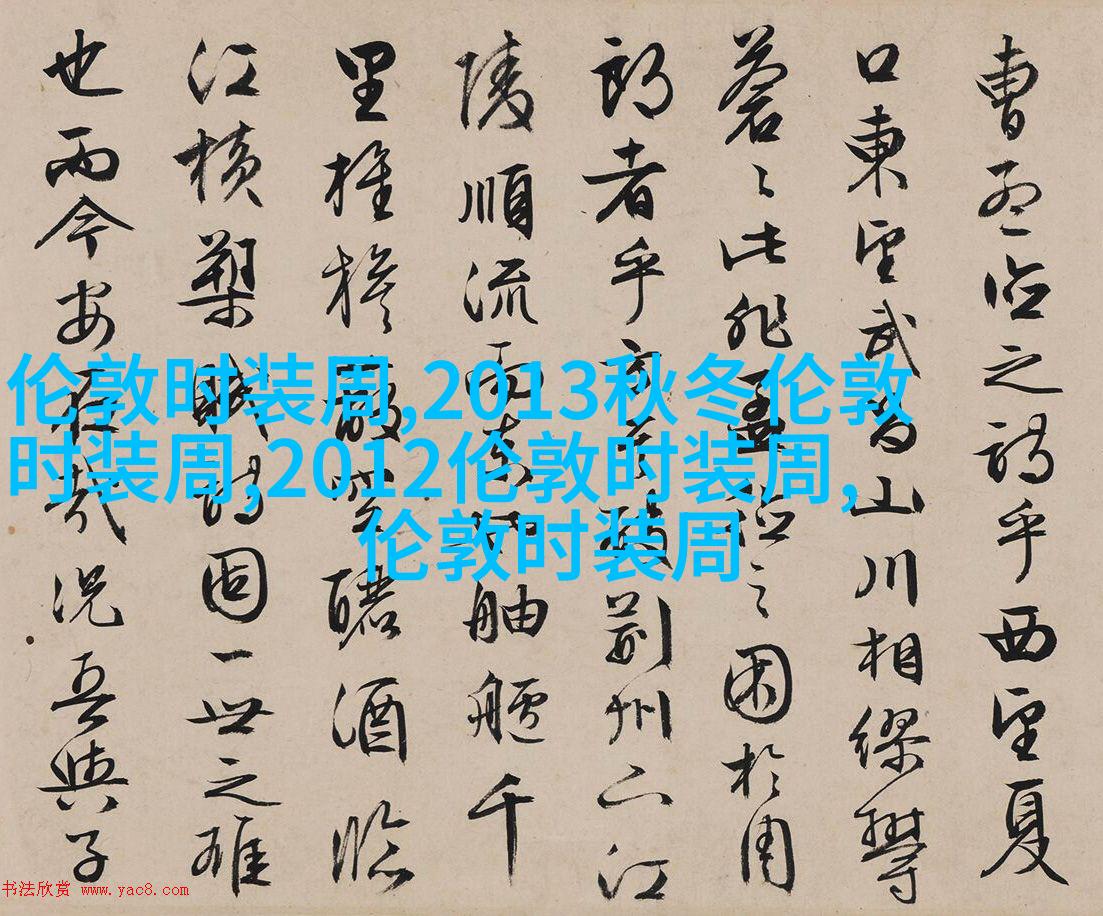 曹孟德之詩乎西望夏
口東望武昌山川相繆鬱
蒼〻此非孟德之困於周
郎者乎方其破荊州下江
陵順流而東也舳艫千
里旌旗蔽空釃酒臨
江橫槊賦詩固一世之雄
也而今安在哉況吾與子
伦敦时装周,2013秋冬伦敦
时装周,2012伦敦时装周,
伦敦时装周
书法欣赏 www.yac8.com